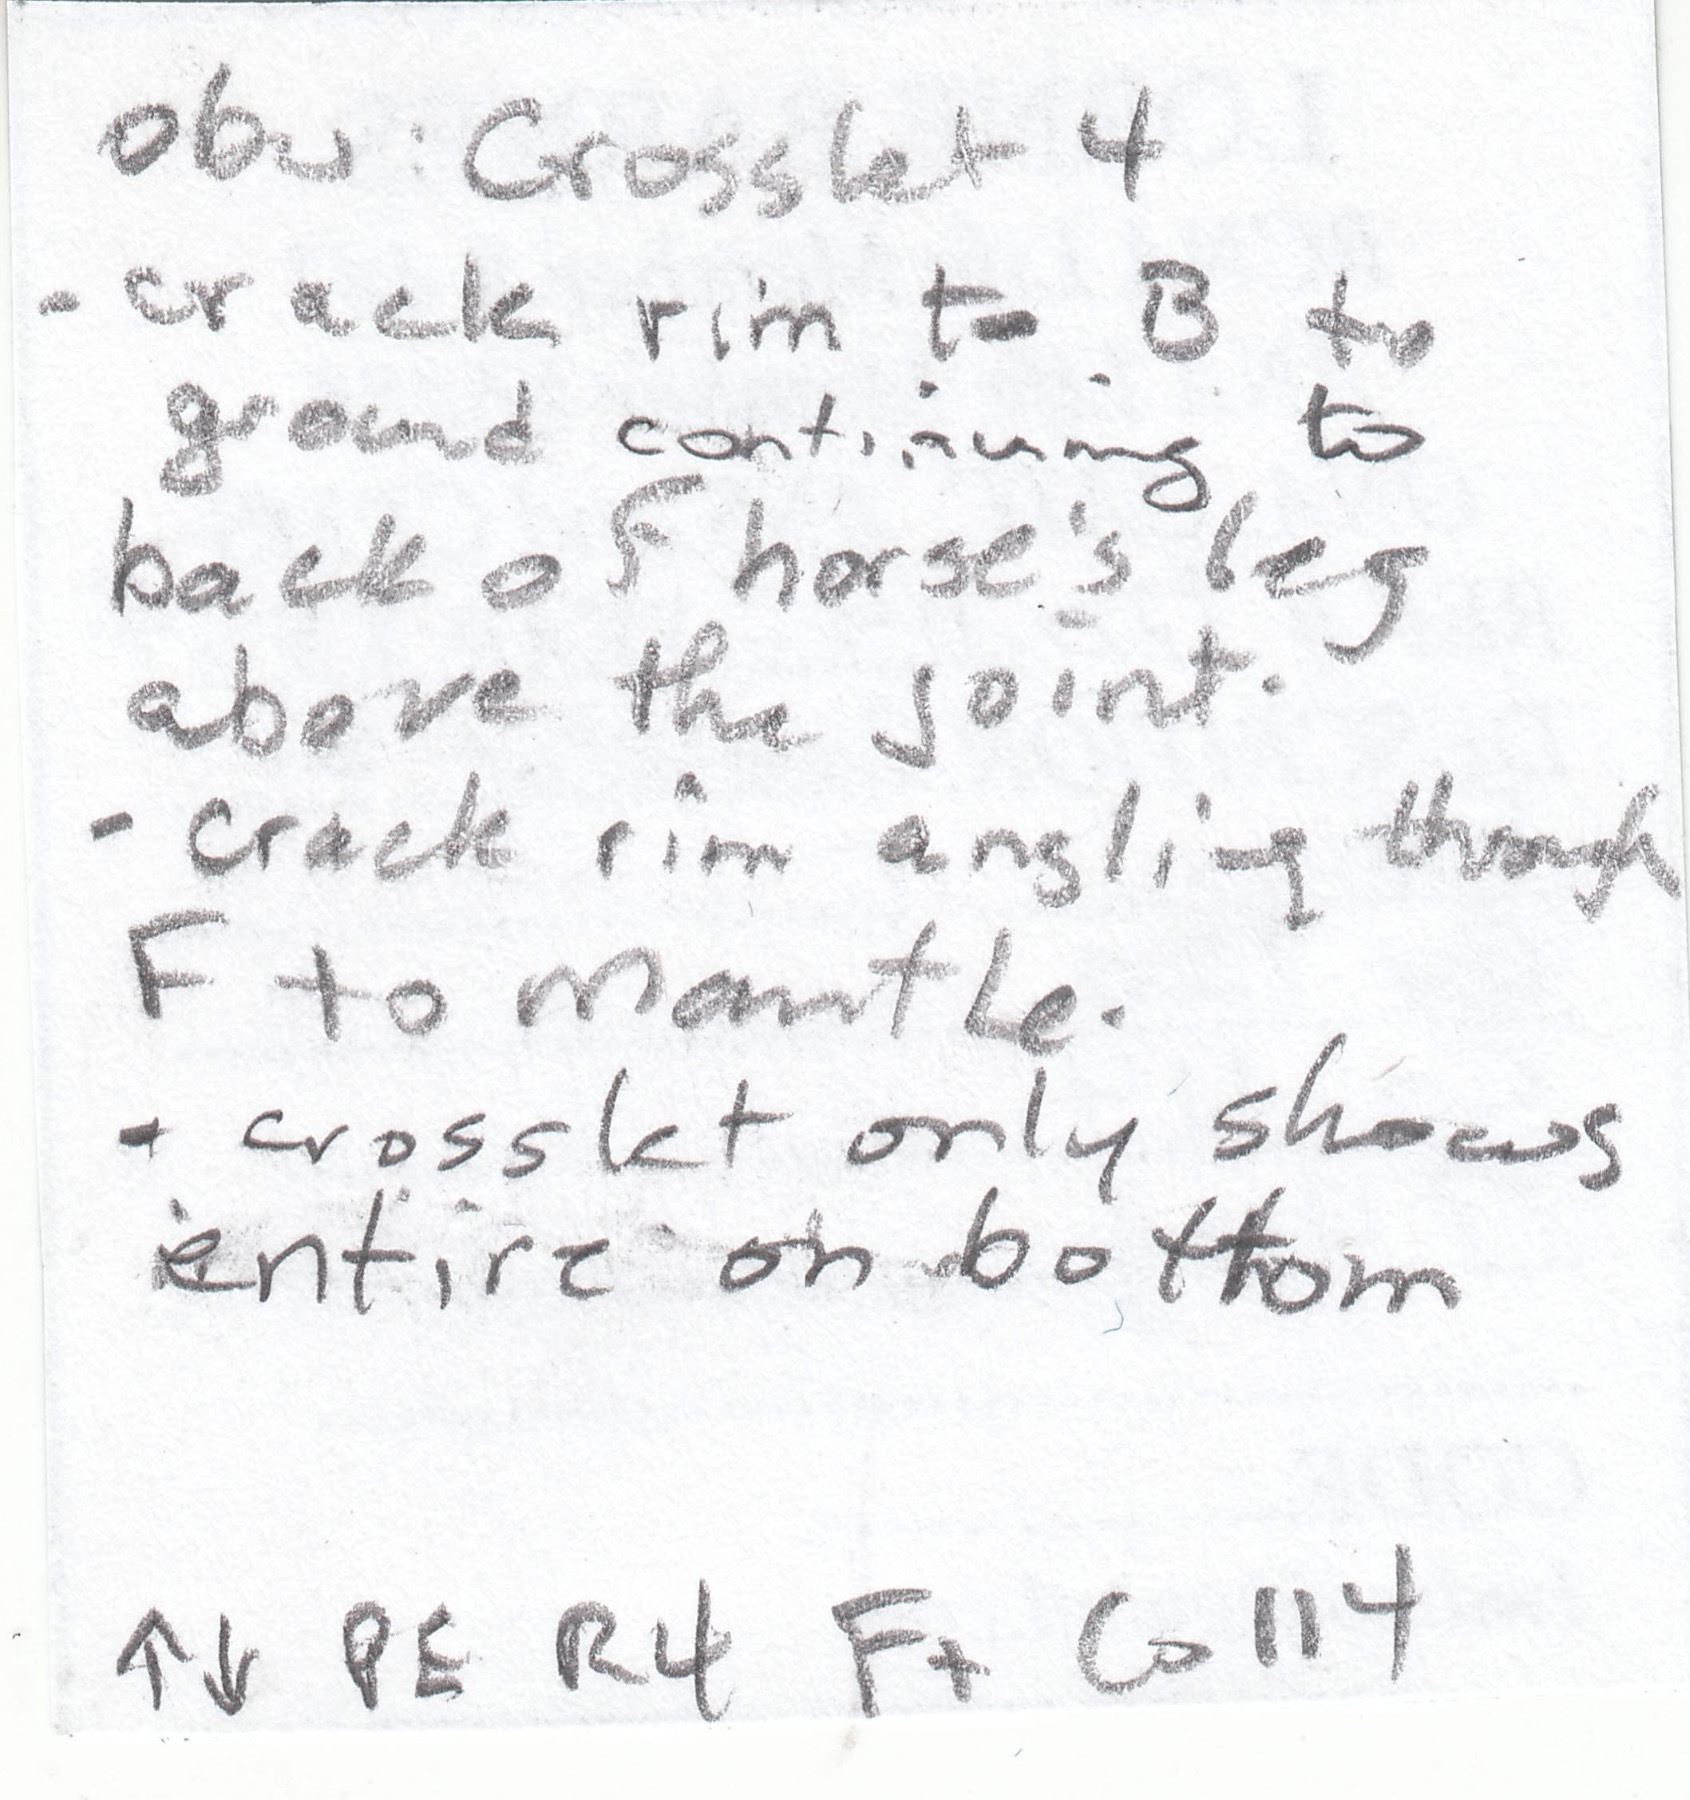 obv: Crosslet 4
- crack rim to B to
ground continuing to
back of horse's leg
above the joint.
- crack rim angling through
F to mantle.
- crosslet only shows
entire on bottom
↑↓ PE R4 F+ Co 114